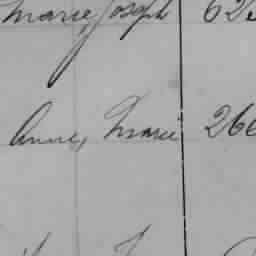 Marie, Joseph 62
Anne, Marie 266